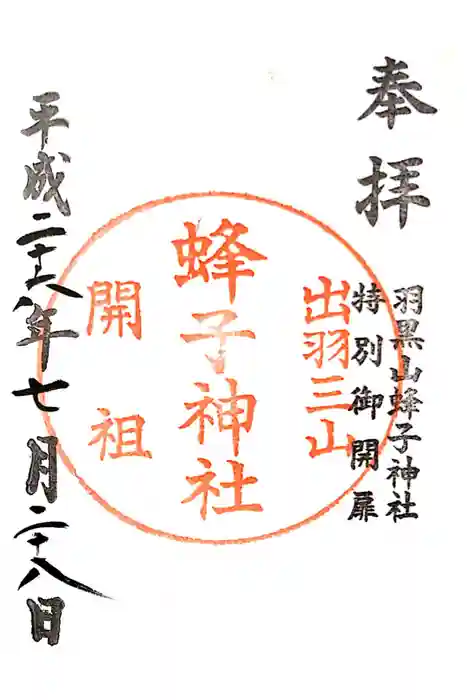 奉拝
羽黒山蜂子神社
特別御開扉
出羽三山
蜂子神社
開祖
平成二十六年七月二十八日